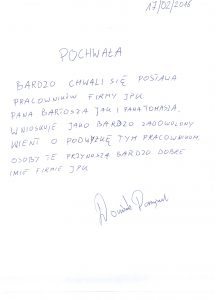 17/02/2016
POCHWAŁA
BARDZO CHWALI SIĘ POSTAWA
PRACOWNIKÓW FIRMY JPK
PANA BARTOSZA JAK I PANA TOMASZA.
WNIOSKUJE JAKO BARDZO ZADOWOLONY
KLIENT O PODWYŻKĘ TYM PRACOWNIKOM,
OSOBY TE PRZYNOSZĄ BARDZO DOBRE
IMIĘ FIRMIE JPK